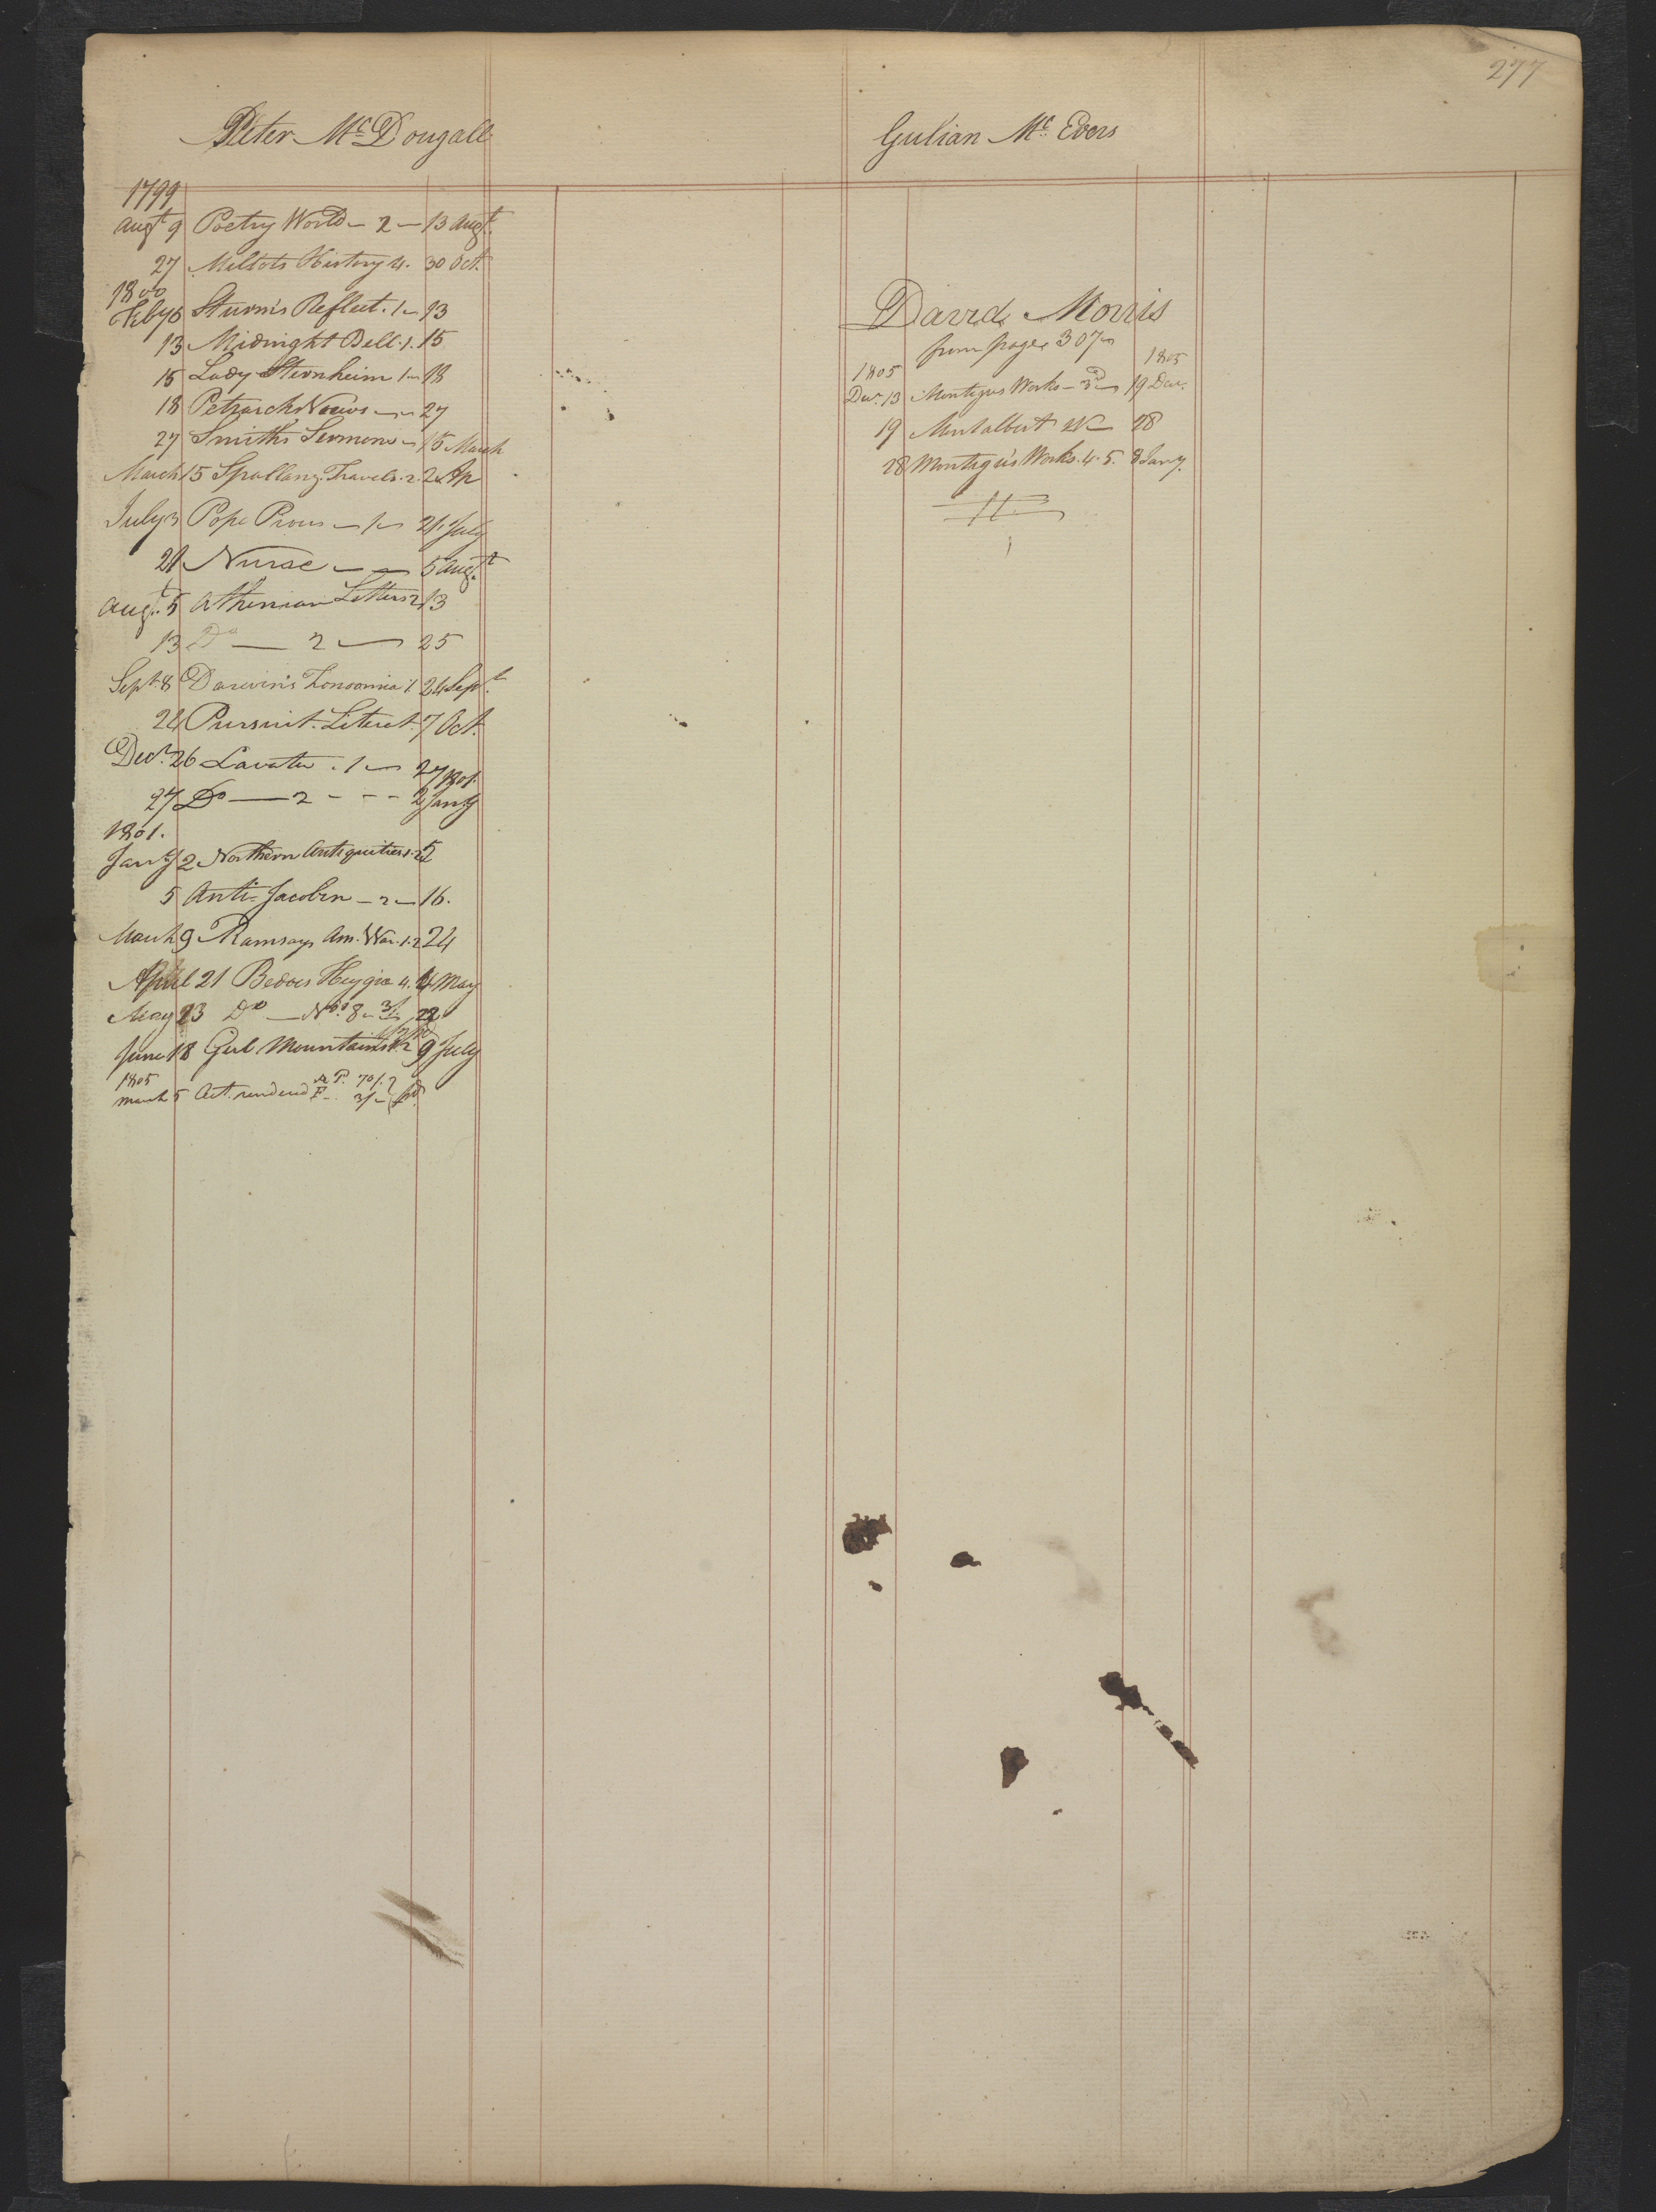 277
Peter McDougall
1799
Augt 9 Poetry World - 2 - 13 Augt
27 Millots History 4. 30 Oct.
1800
Feby 6 Sturm's Reflect. 1 - 13
13 Midnight Bell. 1. 15
15 Lady Sternheim 1 - 18
18 Petrarchs - 27
27 Smiths Sermons - 15 March
March 15 Spallanz. Travels. 2. 2 Ap
July 3 Pope Pious - 1 - 21 July
21 Nurse - - 5 Augt
Augt. 5 Athenian Letters 2 13
13 Do - 2 - 25
Sept. 8 Darwin's Zonoamia 1 24 Sept
24 Pursuit. Literat. 7 Oct.
Decr. 26 Lavater. 1 - 27
27 Do - 2 - - - 1801. 2 Jany
1801.
Jany 2 Northern Antiquities 1.2 5
5 Anti Jacobin - 2 - 16.
March 9 Ramsays Am. War. 1.2 24
April 21 Bedoes Heygia 4. 4 May
May 23 Do - No. 8 - 3/
June 18 Gerl Mountains 9 July
1805
March 5 Act. rendered 70/. 3/- pd.
Gulian Mc. Evers
David Morris
from page 307
1805 1805
Decr. 13 Montagus Works - 3d - 19 Decr.
19 Montalbert 28
28 Montagu's Works. 4. 5. 8 Jany.